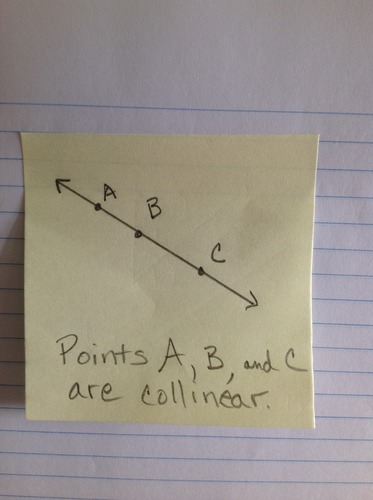 A
B
C
Points A, B, and C
are collinear.